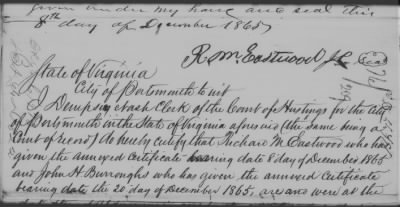 given under my hand and seal this
8th day of December 1865
R. M. Eastwood J.P. Seal
State of Virginia
City of Portsmouth to wit
I Dempsey Clerk of the Court of Hustings for the City
of Portsmouth in the State of Virginia aforesaid (the same being a
Court of record) do hereby certify that Richard M. Eastwood who has
given the annexed certificate bearing date 8 day of December 1865
and John H. Burroughs who has given the annexed certificate
bearing date the 20 day of December 1865, are and were at the